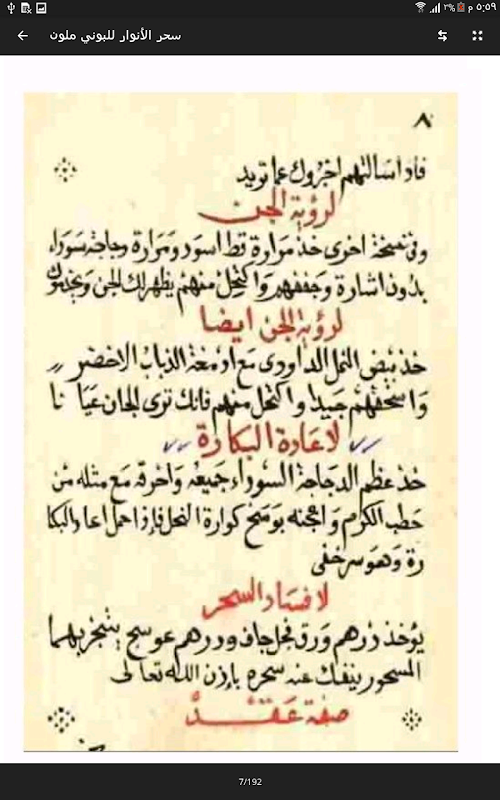 ٥:٥٩ م ٢%
سحر الأنوار للبوني ملون
٨
فاذا سالتهم اخبروك عما تريد
لرؤية الجن
وفي نسخة اخرى خذ مرارة قط اسود ومرارة دجاجة سوداء
بدون اشارة وجففهم واكتحل منهم يظهر لك الجن ويخدموك
لرؤية الجن ايضا
خذ بيض النمل الداودى مع ادمغة الذباب الاخضر
واسحقهم جيدا واكتحل منهم فانك ترى الجان عيانا
لاعادة البكارة
خذ عظم الدجاجة السوداء جميعه واحرقه مع مثله من
حطب الكرم واعجنه بوسخ كوارة النحل فاذا حمل اعاد البكا
رة وهو سر خفى
لافساد السحر
يؤخذ درهم ورق فجل جاف ودرهم عوسج يتبخر بهما
المسحور ينفك عنه سحره باذن الله تعالى
صفة عقد
7/192